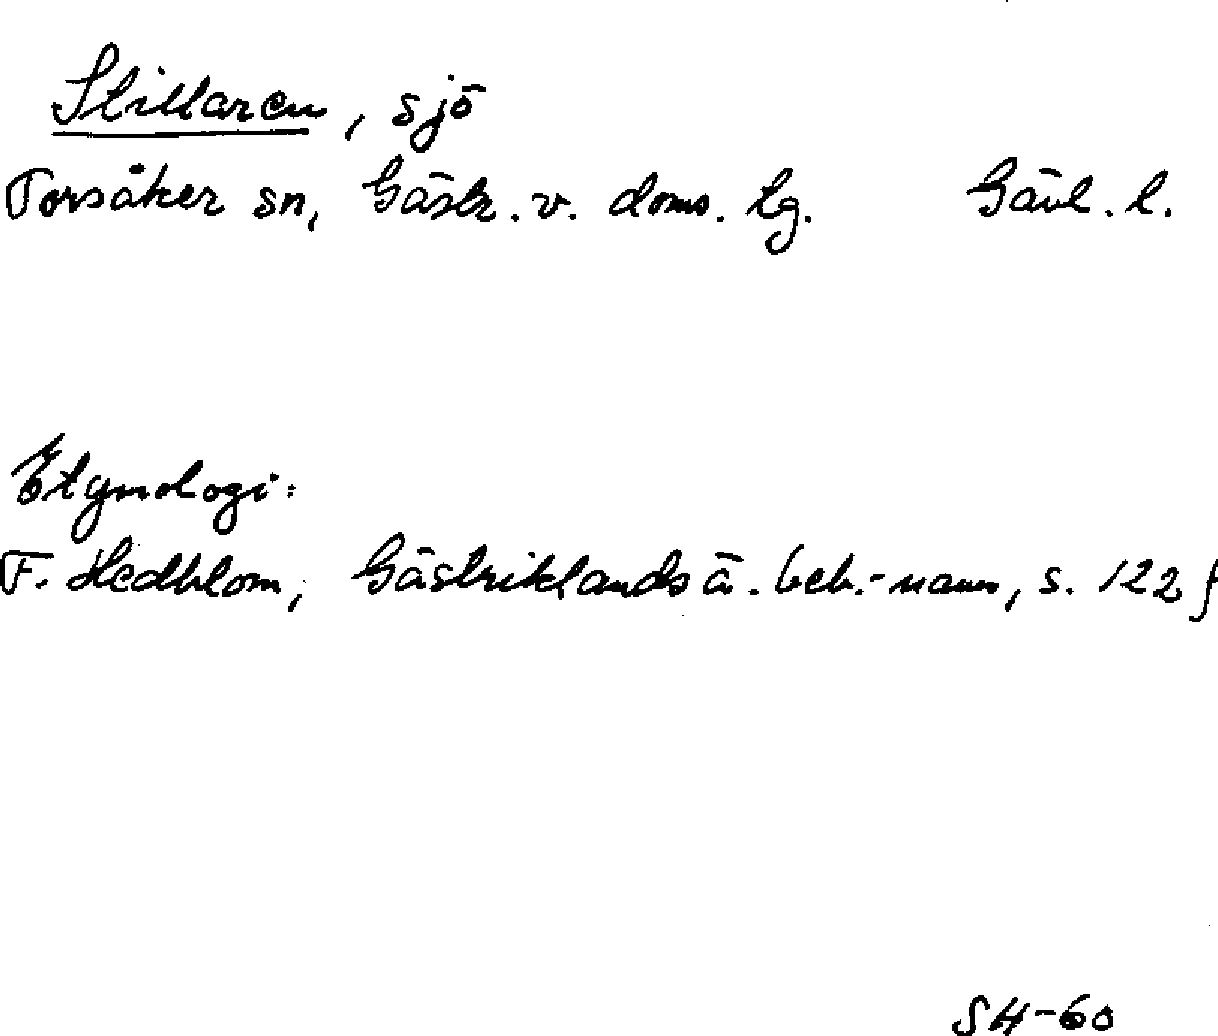 Stillaren, sjö
Torsåker sn, Gästr. v. doms. tg. Gävl. l.
Etymologi:
F. Hedblom, Gästriklands ä. beb.-namn, s. 122 f
SH-60